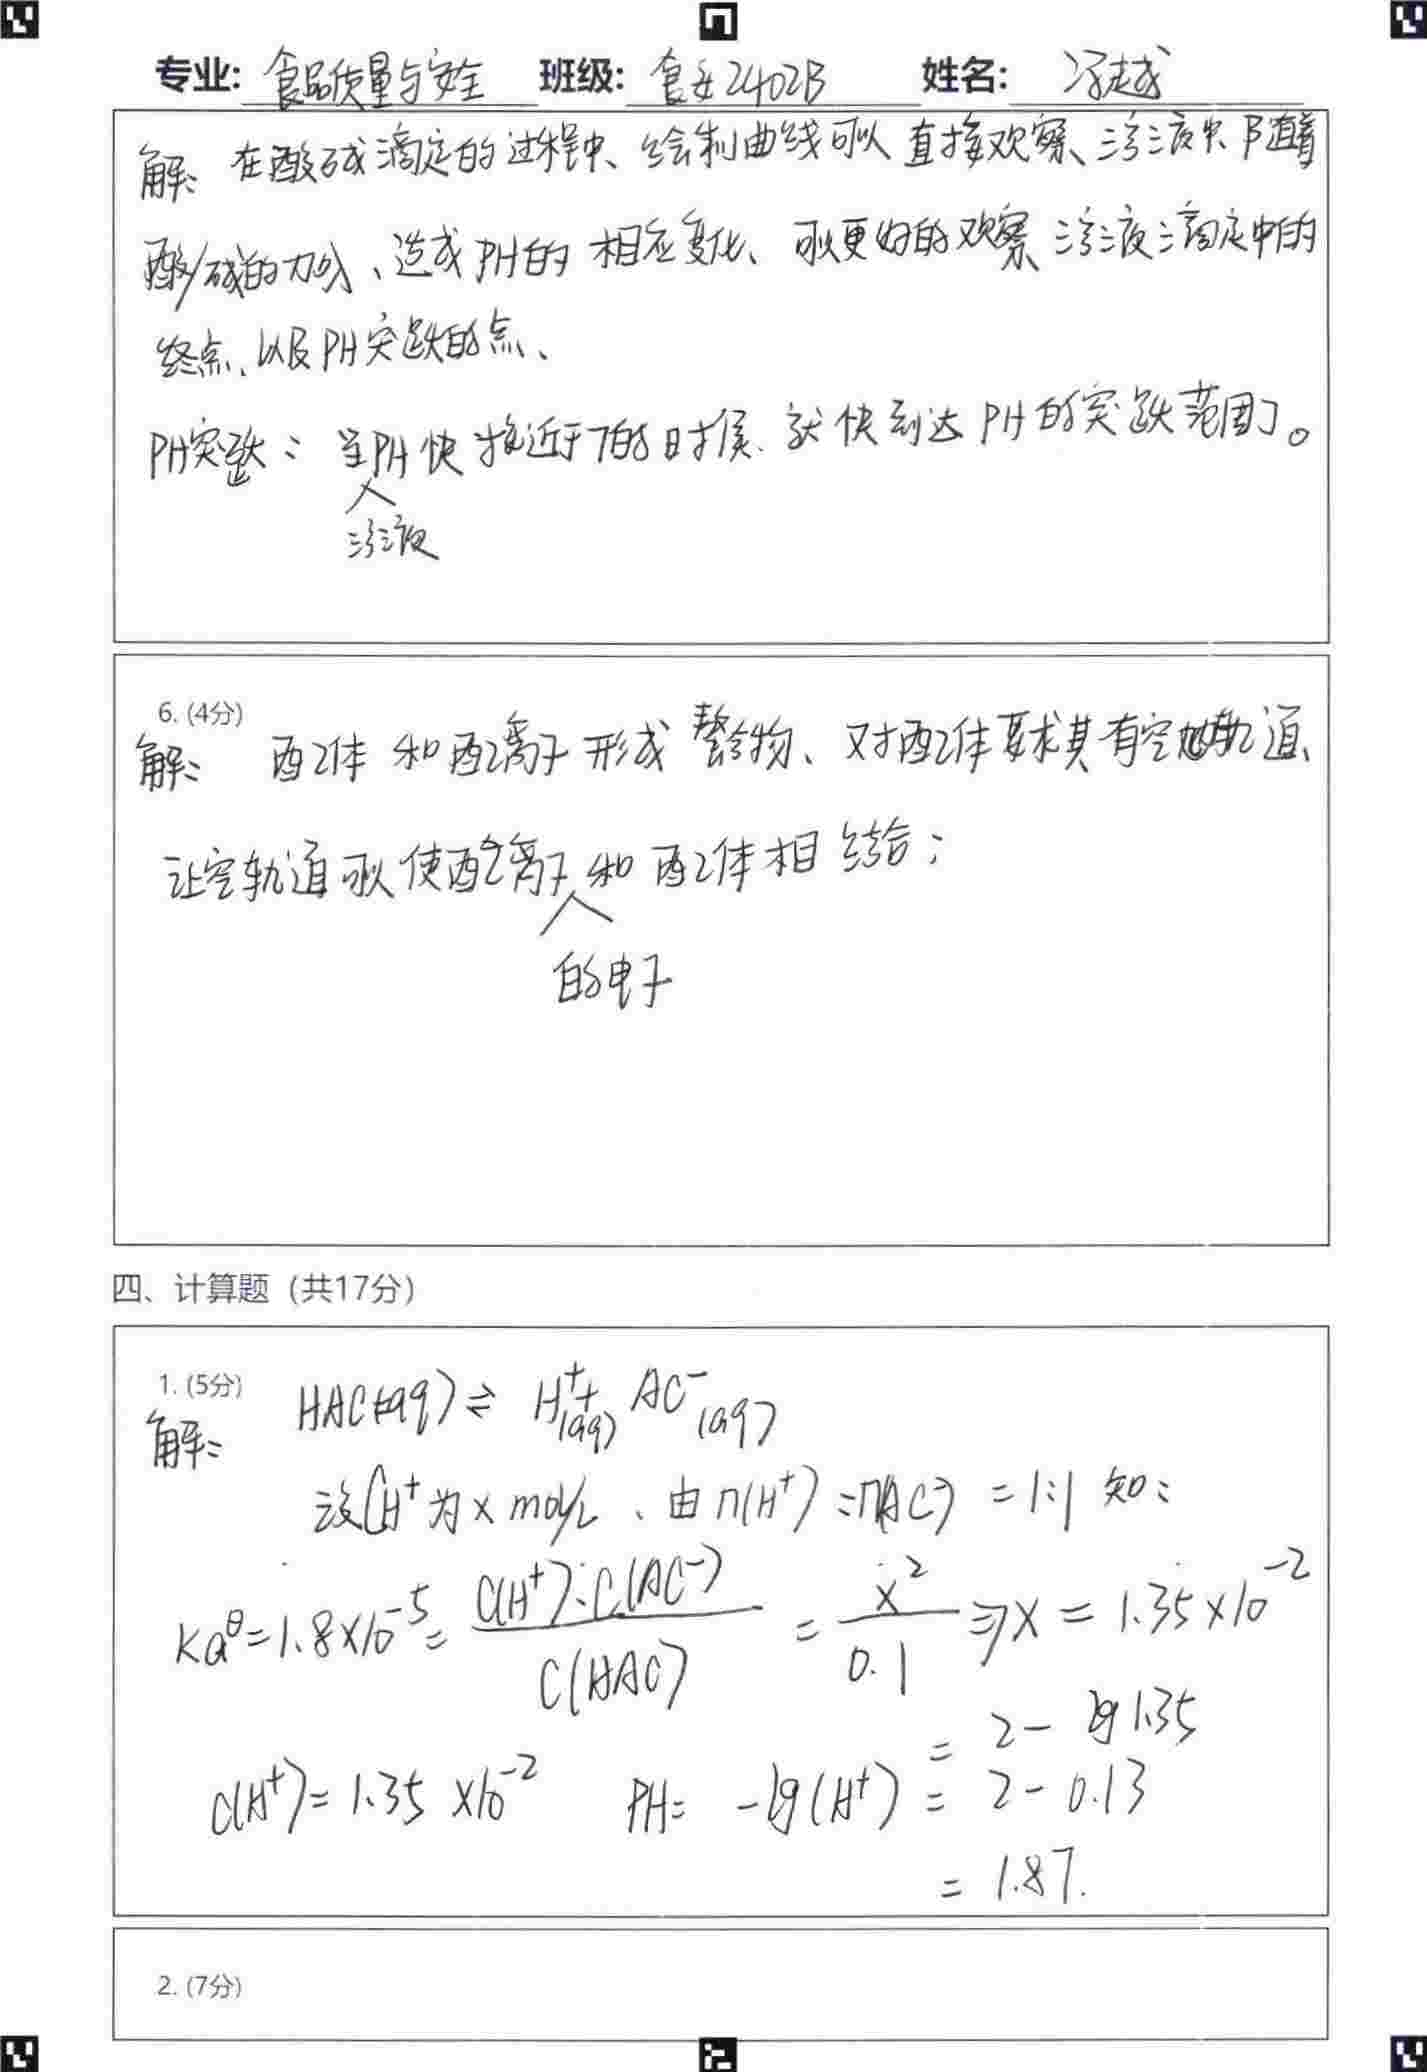 专业: 食品质量与安全 班级: 食安2402B 姓名: 冯越
解: 在酸碱滴定的过程中、绘制曲线可以直接观察、溶液中、随着
酸/碱的加入、造成PH的相应变化、可以更好的观察溶液滴定中的
终点、以及PH突跃的点、
PH突跃: 当PH快接近于7的时候、就快到达PH的突跃范围了。
溶液
6. (4分)
解: 配体和配离子形成螯合物、对配体要求其有空轨道、
让空轨道可以使配离子和配体相结合;
的电子
四、计算题（共17分）
1. (5分) HAC(aq) ⇌ H⁺(aq) + AC⁻(aq)
解:
设CH⁺为x mol/L、由n(H⁺):n(AC⁻) = 1:1 知:
Kaθ = 1.8×10⁻⁵ = C(H⁺)·C(AC⁻) / C(HAC) = x² / 0.1 ⇒ x = 1.35×10⁻²
= 2 - lg1.35
C(H⁺) = 1.35×10⁻² PH = -lg(H⁺) = 2 - 0.13
= 1.87.
2. (7分)